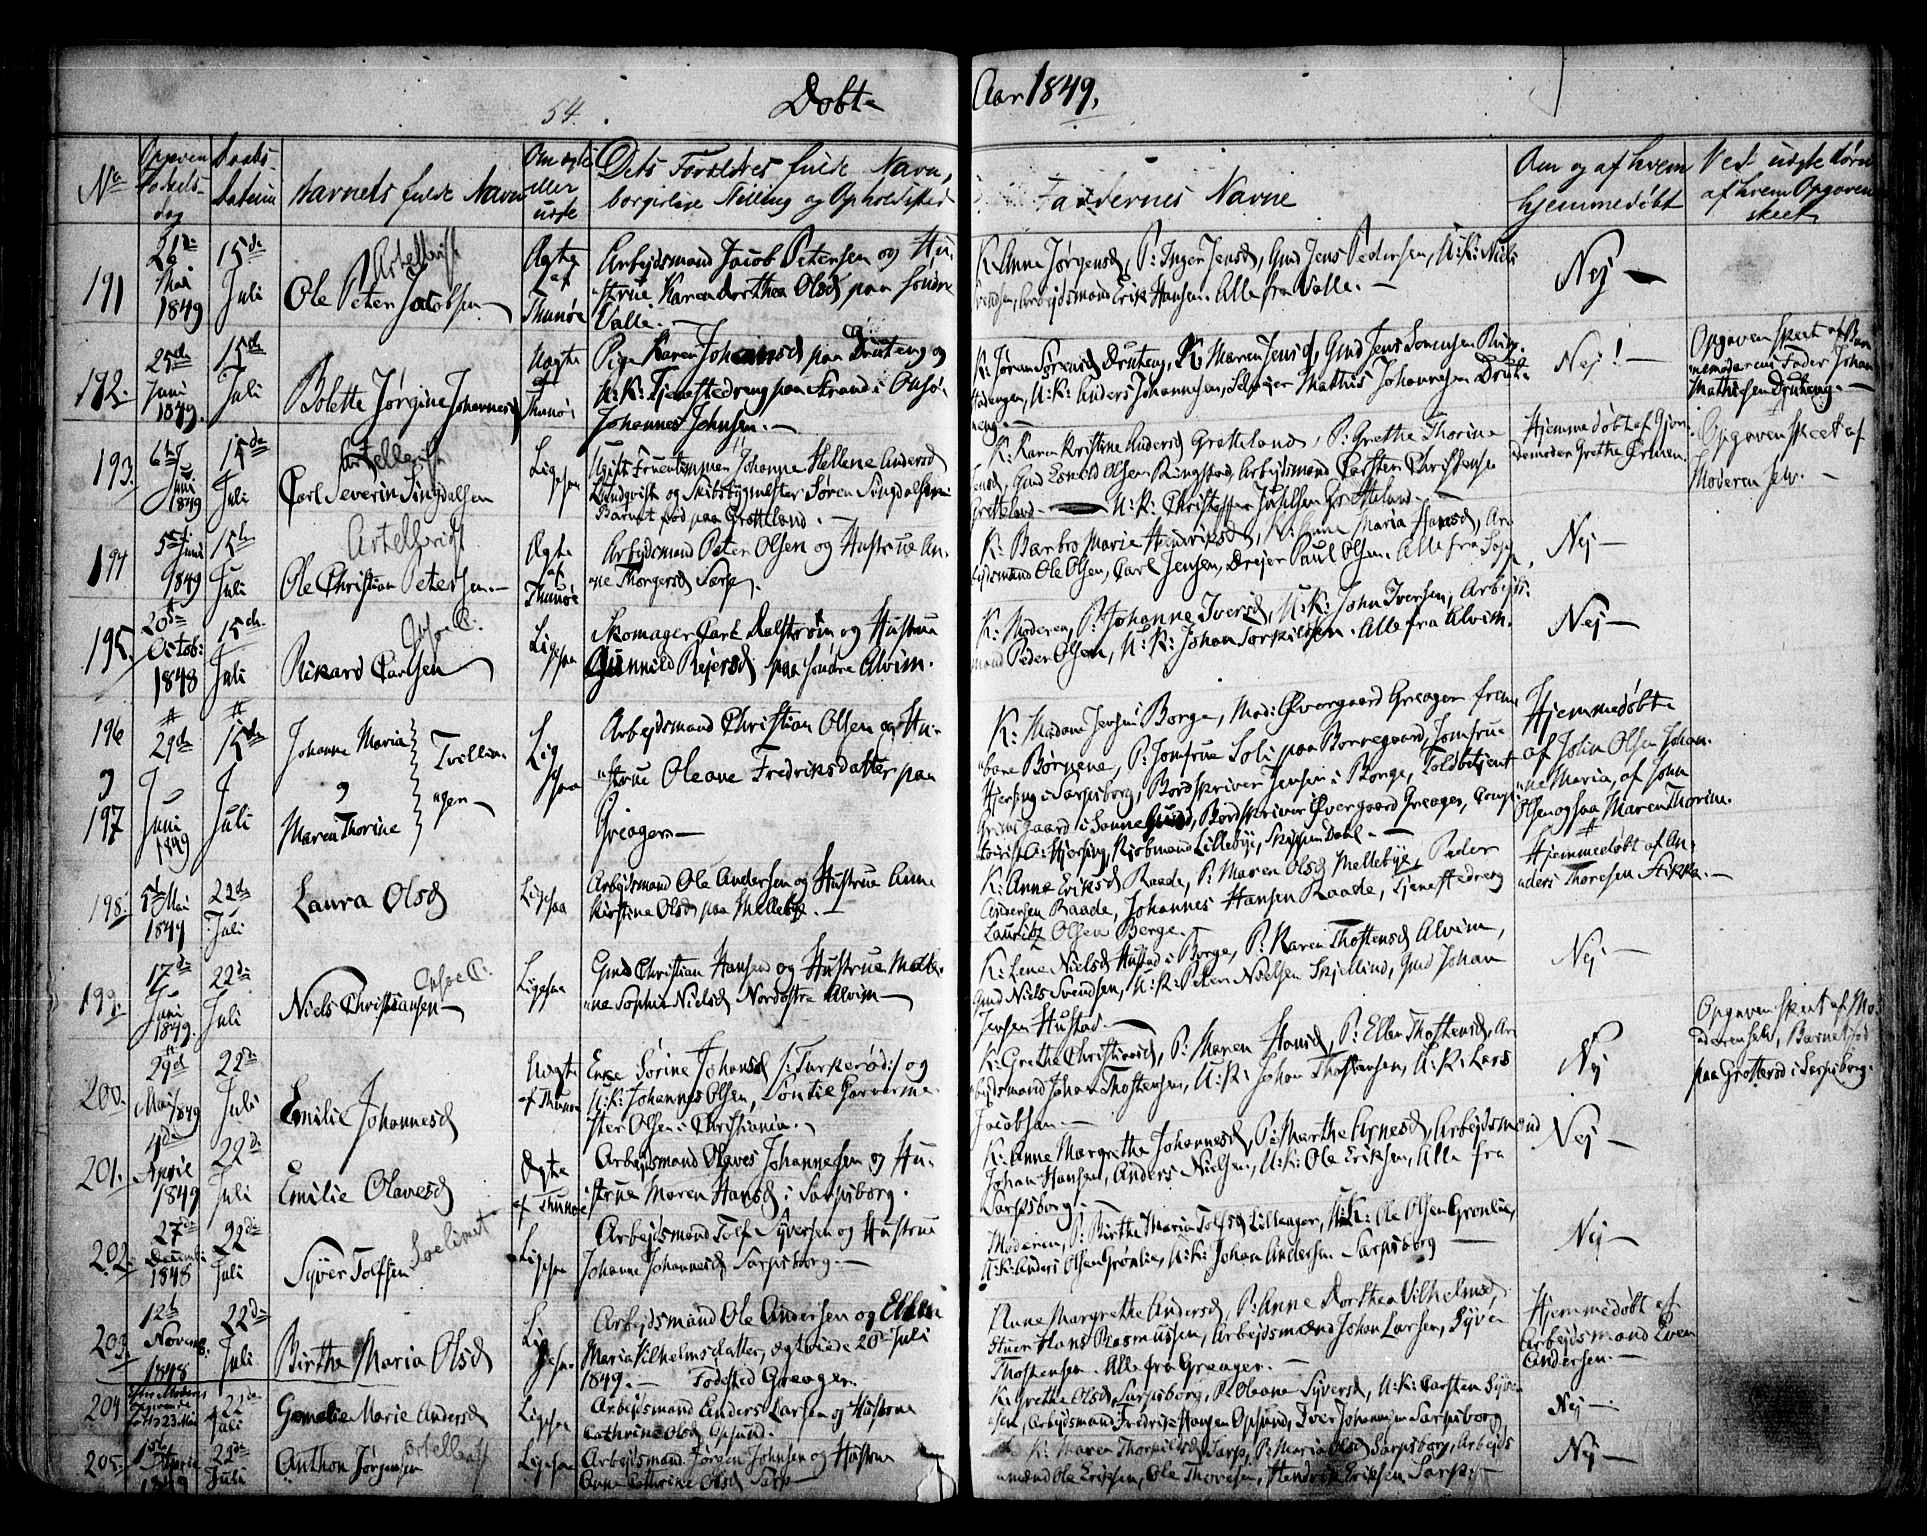 54.
Døbte
Aar 1849.
No
Opgiven Fødselsdag
Daabs Datum
Barnets fulde Navn
Om ægte eller uægte
Dets Forældres fulde Navn,
borgerlige Stilling og Opholdssted
Faddernes Navne
Om og af hvem
hjemmedøbt
Ved uægte Børn
af hvem Opgaven
skeet
191
26de Mai 1849
15de Juli
Ole Peter Jacobsen
Ægte af Thunøe
Arbejdsmand Jacob Petersen og Hu-
strue Karen Dorthea Olsd paa søndre
Valle.
K: Anne Jørgensd, P: Inger Jensd, Gmd Jens Pedersen, U:K: Niels
Svendsen, Arbejdsmand Erik Hansen. Alle fra Valle.
Nej
192.
25de Juni 1849.
15de Juli
Bolette Jørgine Johannesd
Uægte af Thunøe
Pige Karen Johannesd paa Druteng og
U:K: Tjenestedreng paa Strand i Onsøe
Johannes Johnsen.
K: Jøran Sørensd Druteng, K: Maren Jensd, Gmd Jens Sørensen
U:K: Anders Johannesen, Mathis Johannesen Drute-
neng.
Nej!
Opgaven skeet af Bar-
nemoderens Fader Johan
Mathisen Druteng.
193.
6te Juni 1849
15de Juli
Carl Severin Singdalsen
Ligesaa
Ugift Fruentimmer Johanne Hellene Andersd
Lundqvist og Skibsbygmester Søren Singdalsen
Barnet fød paa Grotteland.
K: Karen Kristine Andersd Gretteland, P: Grethe Thorine
Jensd, Gmd Olsen Ringstad, Arbejdsmand Carsten Christensen
Gretteland. U:K: Christoffer Gretteland.
Hjemmedøbt af Gjor-
demoder Grethe
Opgaven skeet af
Moderen selv.
194
5te Juni 1849
15de Juli
Ole Christian Petersen
Ægte af Thunøe
Arbejdsmand Peter Olsen og Hustrue An-
ne Thorgersd Sarp.
K: Barbro Marie Henriksd, P: Anne Maria Hansd, Ar-
bejdsmand Ole Olsen, Carl Jensen, Drejer Paul Olsen. Alle fra Sarp.
Nej
195.
20de Octob: 1848
15de Juli
Rikard Carlsen
Ligesaa
Skomager Carl Dalstrøm og Hustrue
Gunnild Rejersd paa søndre Alvim.
K: Moderen, P: Johanne Iversd, U:K: John Iversen, Arbejds-
mand Peder Olsen, U:K: Johan Torkildsen. Alle fra Alvim.
Nej
196 og 197
29de Juni 1849
15de Juli
Johanne Maria og Maren Thorine
Tvillinger
Ligesaa
Arbejdsmand Christian Olsen og Hu-
strue Oleane Fredriksdatter paa
Greager
K: Madame Jensen Borge, Mad: Øvergaard Greager frem-
bare Børnene, P: Jomfrue Soli paa Borregaard, Jomfrue
Hjersing i Sarpsborg, Bordskriver Jensen i Borge, Toldbetjent
Grimsgaard i Sannesund, Bordskriver Øvergaard Greager,
Hjersing, Kjøbmand Lillebye, Skipper Dahl.
Hjemmedøbte
af John Olsen Johan-
ne Maria, af John
Olsen ogsaa Maren Thorine.
198.
5te Mai 1849
22de Juli
Laura Olsd
Ligesaa
Arbejdsmand Ole Andersen og Hustrue Anne
Kirstine Olsd paa Mellebye.
K: Anne Eriksd Raade, P: Maren Olsd Mellebye, Peder
Andersen Raade, Johannes Hansen Raade, Tjenestedreng
Lauritz Olsen Berge.
Hjemmedøbt af An-
ders Thoresen
199.
17de Juni 1849.
22de Juli
Niels Christiansen
Ligesaa
Gmd Christian Hansen og Hustrue
Sophie Nielsd Nordøstre Alvim
K: Lene Nielsd Hustad i Borge, P: Karen Thostensd Alvim,
Gmd Niels Svendsen, U:K: Peter Nielsen Skjellind, Gmd Johan
Jensen Hustad.
Nej
200.
29de Mai 1849
22de Juli
Emilie Johannesd
Uægte af Thunøe
Enke Sørine Johansd og
U:K: Johannes Olsen, Søn til Garverme-
ster Olsen i Christiania.
K: Grethe Christiansd, P: Maren Hansd, P: Ellen Thostensd, Ar-
bejdsmand Johan Thostensen, U:K: Johan Thostensen, U:K: Lars
Jacobsen.
Nej
Opgaven skeet af Mo-
deren selv, Barnet fød
paa Grotterød i Sarpsborg.
201.
4de April 1849
22de Juli
Emilie Olavesd
Ægte af Thunøe
Arbejdsmand Olaves Johannesen og Hu-
strue Maren Hansd i Sarpsborg.
K: Anne Margrethe Johannesd, P: Marthe Arnesd, Arbejdsmand
Johan Hansen, Anders Nielsen, U:K: Ole Eriksen, Alle fra
Sarpsborg.
Nej
202.
27de Decemb: 1848
22de Juli
Syver Tolfsen
Ligesaa
Arbejdsmand Tolf Syversen og Hustrue
Johanne Johannesd Sarpsborg
Moderen, P: Birthe Maria Tolfsd Lilleager, U:K: Ole Olsen Grønlie,
U:K: Anders Olsen Grønlie, U:K: Johan Andersen Sarpsborg
Nej
203.
12te Novemb. 1848
22de Juli
Birthe Maria Olsd
Ligesaa
Arbejdsmand Ole Andersen og Ellen
Maria Vilhelmsdatter, ægteviede 20de Juli
1849. Fødested Greager.
Anne Margrethe Andersd, P: Anne Dorthea Vilhelmsd,
Stuer Hans Rasmussen, Arbejdsmænd Johan Larsen, Syver
Thostensen. Alle fra Greager.
Hjemmedøbt af
Arbejdsmand Even
Andersen.
204.
Efter Moders Opgivende født 23 Mai
22de Juli
Gemalie Marie Andersd
Ligesaa
Arbejdsmand Anders Larsen og Hustrue
Cathrine Olsd Opsund.
K: Grethe Olsd Sarpsborg, P: Oleane Syversd, U:K: Carsten Syver-
sen, Arbejdsmand Fredrik Hansen Opsund, Iver Johannesen Sarpsborg
Nej
205.
1849
22de Juli
Anthon Jørgensen
Ligesaa
Arbejdsmand Jørgen Johnsen og Hustrue
Anne Cathrine Olsd Sarp
K: Maren Thorkildsd Sarp, P: Maria Olsd Sarpsborg, Arbejds-
mænd Ole Eriksen, Ole Thoresen, Hendrik Eriksen Sarp.
Nej